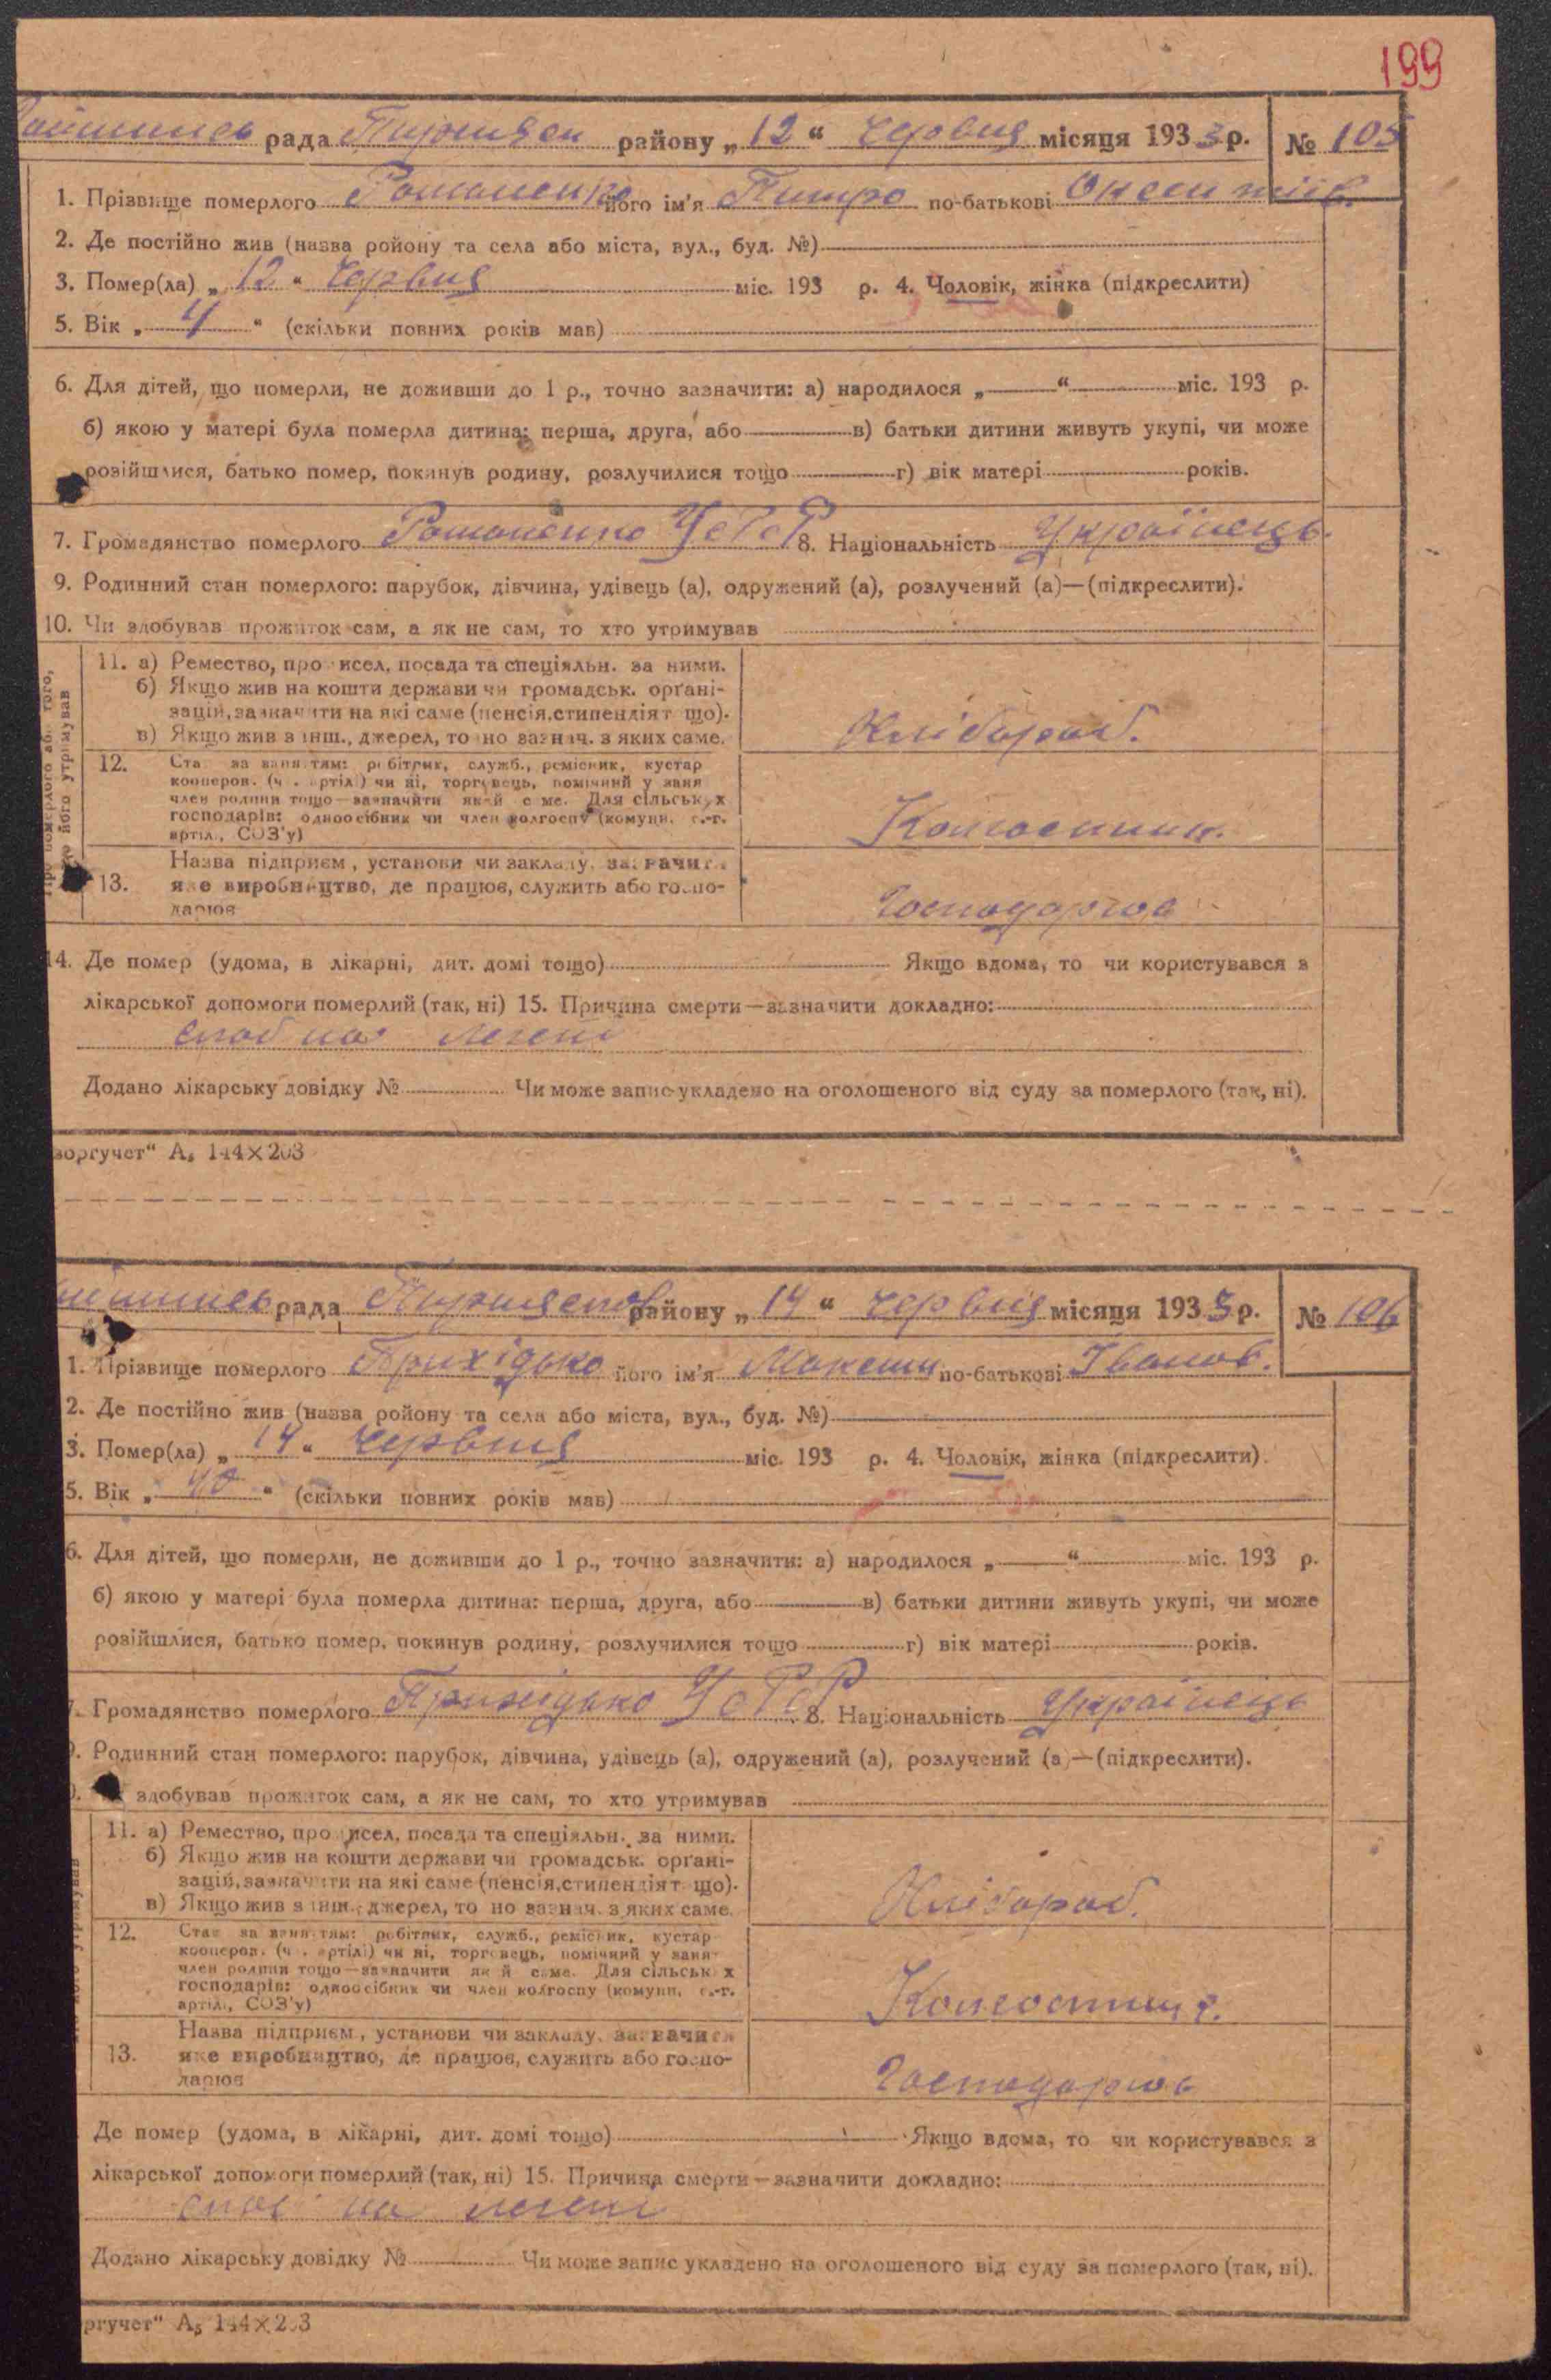 199
рада Пирятин району „ 12 “ Червня місяця 1933 р. № 105
1. Прізвище померлого Романенко його ім'я Питро по-батькові
2. Де постійно жив (назва ройону та села або міста, вул., буд. №)
3. Помер(ла) „ 12 “ Червня міс. 193 р. 4. Чоловік, жінка (підкреслити)
5. Вік „ 4 “ (скільки повних років мав)
6. Для дітей, що померли, не доживши до 1 р., точно зазначити: а) народилося „ “ міс. 193 р.
б) якою у матері була померла дитина: перша, друга, або в) батьки дитини живуть укупі, чи може
розійшлися, батько помер, покинув родину, розлучилися тощо г) вік матері років.
7. Громадянство померлого Романенко УСРР 8. Національність Українець
9. Родинний стан померлого: парубок, дівчина, удівець (а), одружений (а), розлучений (а)—(підкреслити).
10. Чи здобував прожиток сам, а як не сам, то хто утримував
11. а) Ремество, про исел, посада та спеціяльн. за ними.
б) Якщо жив на кошти держави чи громадськ. орґані-
зацій, зазначити на які саме (пенсія, стипендіят що).
в) Якщо жив з інш., джерел, то но зазнач. з яких саме.
Хлібороб.
12. Ста за заняттям: робітник, служб., ремісник, кустар
кооперов. (ч . артілі) чи ні, торговець, помічний у заня
член родини тощо—зазначити як й с ме. Для сільськ х
господарів: одноосібник чи член колгоспу (комуни, с.-г.
артіл., СОЗ'у)
Колгоспник.
13. Назва підприєм, установи чи закладу, зазначити
яке виробництво, де працює, служить або госпо-
дарює
Господарюв
14. Де помер (удома, в лікарні, дит. домі тощо) Якщо вдома, то чи користувався з
лікарської допомоги померлий (так, ні) 15. Причина смерти—зазначити докладно:
слаб на легені
Додано лікарську довідку № Чи може запис укладено на оголошеного від суду за померлого (так, ні).
воргучет“ А₅ 144×203
рада району „ 14 “ Червня місяця 1933 р. № 106
1. Прізвище померлого Прихідько його ім'я Максим по-батькові Іванов.
2. Де постійно жив (назва ройону та села або міста, вул., буд. №)
3. Помер(ла) „ 14 “ Червня міс. 193 р. 4. Чоловік, жінка (підкреслити)
5. Вік „ 40 “ (скільки повних років мав)
6. Для дітей, що померли, не доживши до 1 р., точно зазначити: а) народилося „ “ міс. 193 р.
б) якою у матері була померла дитина: перша, друга, або в) батьки дитини живуть укупі, чи може
розійшлися, батько помер, покинув родину, розлучилися тощо г) вік матері років.
7. Громадянство померлого Прихідько УСРР 8. Національність Українець
Родинний стан померлого: парубок, дівчина, удівець (а), одружений (а), розлучений (а)—(підкреслити).
здобував прожиток сам, а як не сам, то хто утримував
11. а) Ремество, про исел, посада та спеціяльн. за ними.
б) Якщо жив на кошти держави чи громадськ. орґані-
зацій, зазначити на які саме (пенсія, стипендіят що).
в) Якщо жив з інш., джерел, то но зазнач. з яких саме.
Хлібороб.
12. Ста за заняттям: робітник, служб., ремісник, кустар
кооперов. (ч . артілі) чи ні, торговець, помічний у заня
член родини тощо—зазначити як й саме. Для сільськ х
господарів: одноосібник чи член колгоспу (комуни, с.-г.
артіл., СОЗ'у)
Колгоспник.
13. Назва підприєм, установи чи закладу, зазначити
яке виробництво, де працює, служить або госпо-
дарює
Господарюв
Де помер (удома, в лікарні, дит. домі тощо) Якщо вдома, то чи користувався з
лікарської допомоги померлий (так, ні) 15. Причина смерти—зазначити докладно:
слаб на легені
Додано лікарську довідку № Чи може запис укладено на оголошеного від суду за померлого (так, ні).
ргучет“ А₅ 144×203